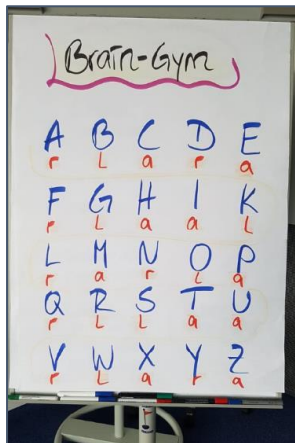 Brain-Gym
A B C D E
r L a r a
F G H I K
r L a a L
L M N O P
r a r L a
Q R S T U
r L L a a
V W X Y Z
r L a r a